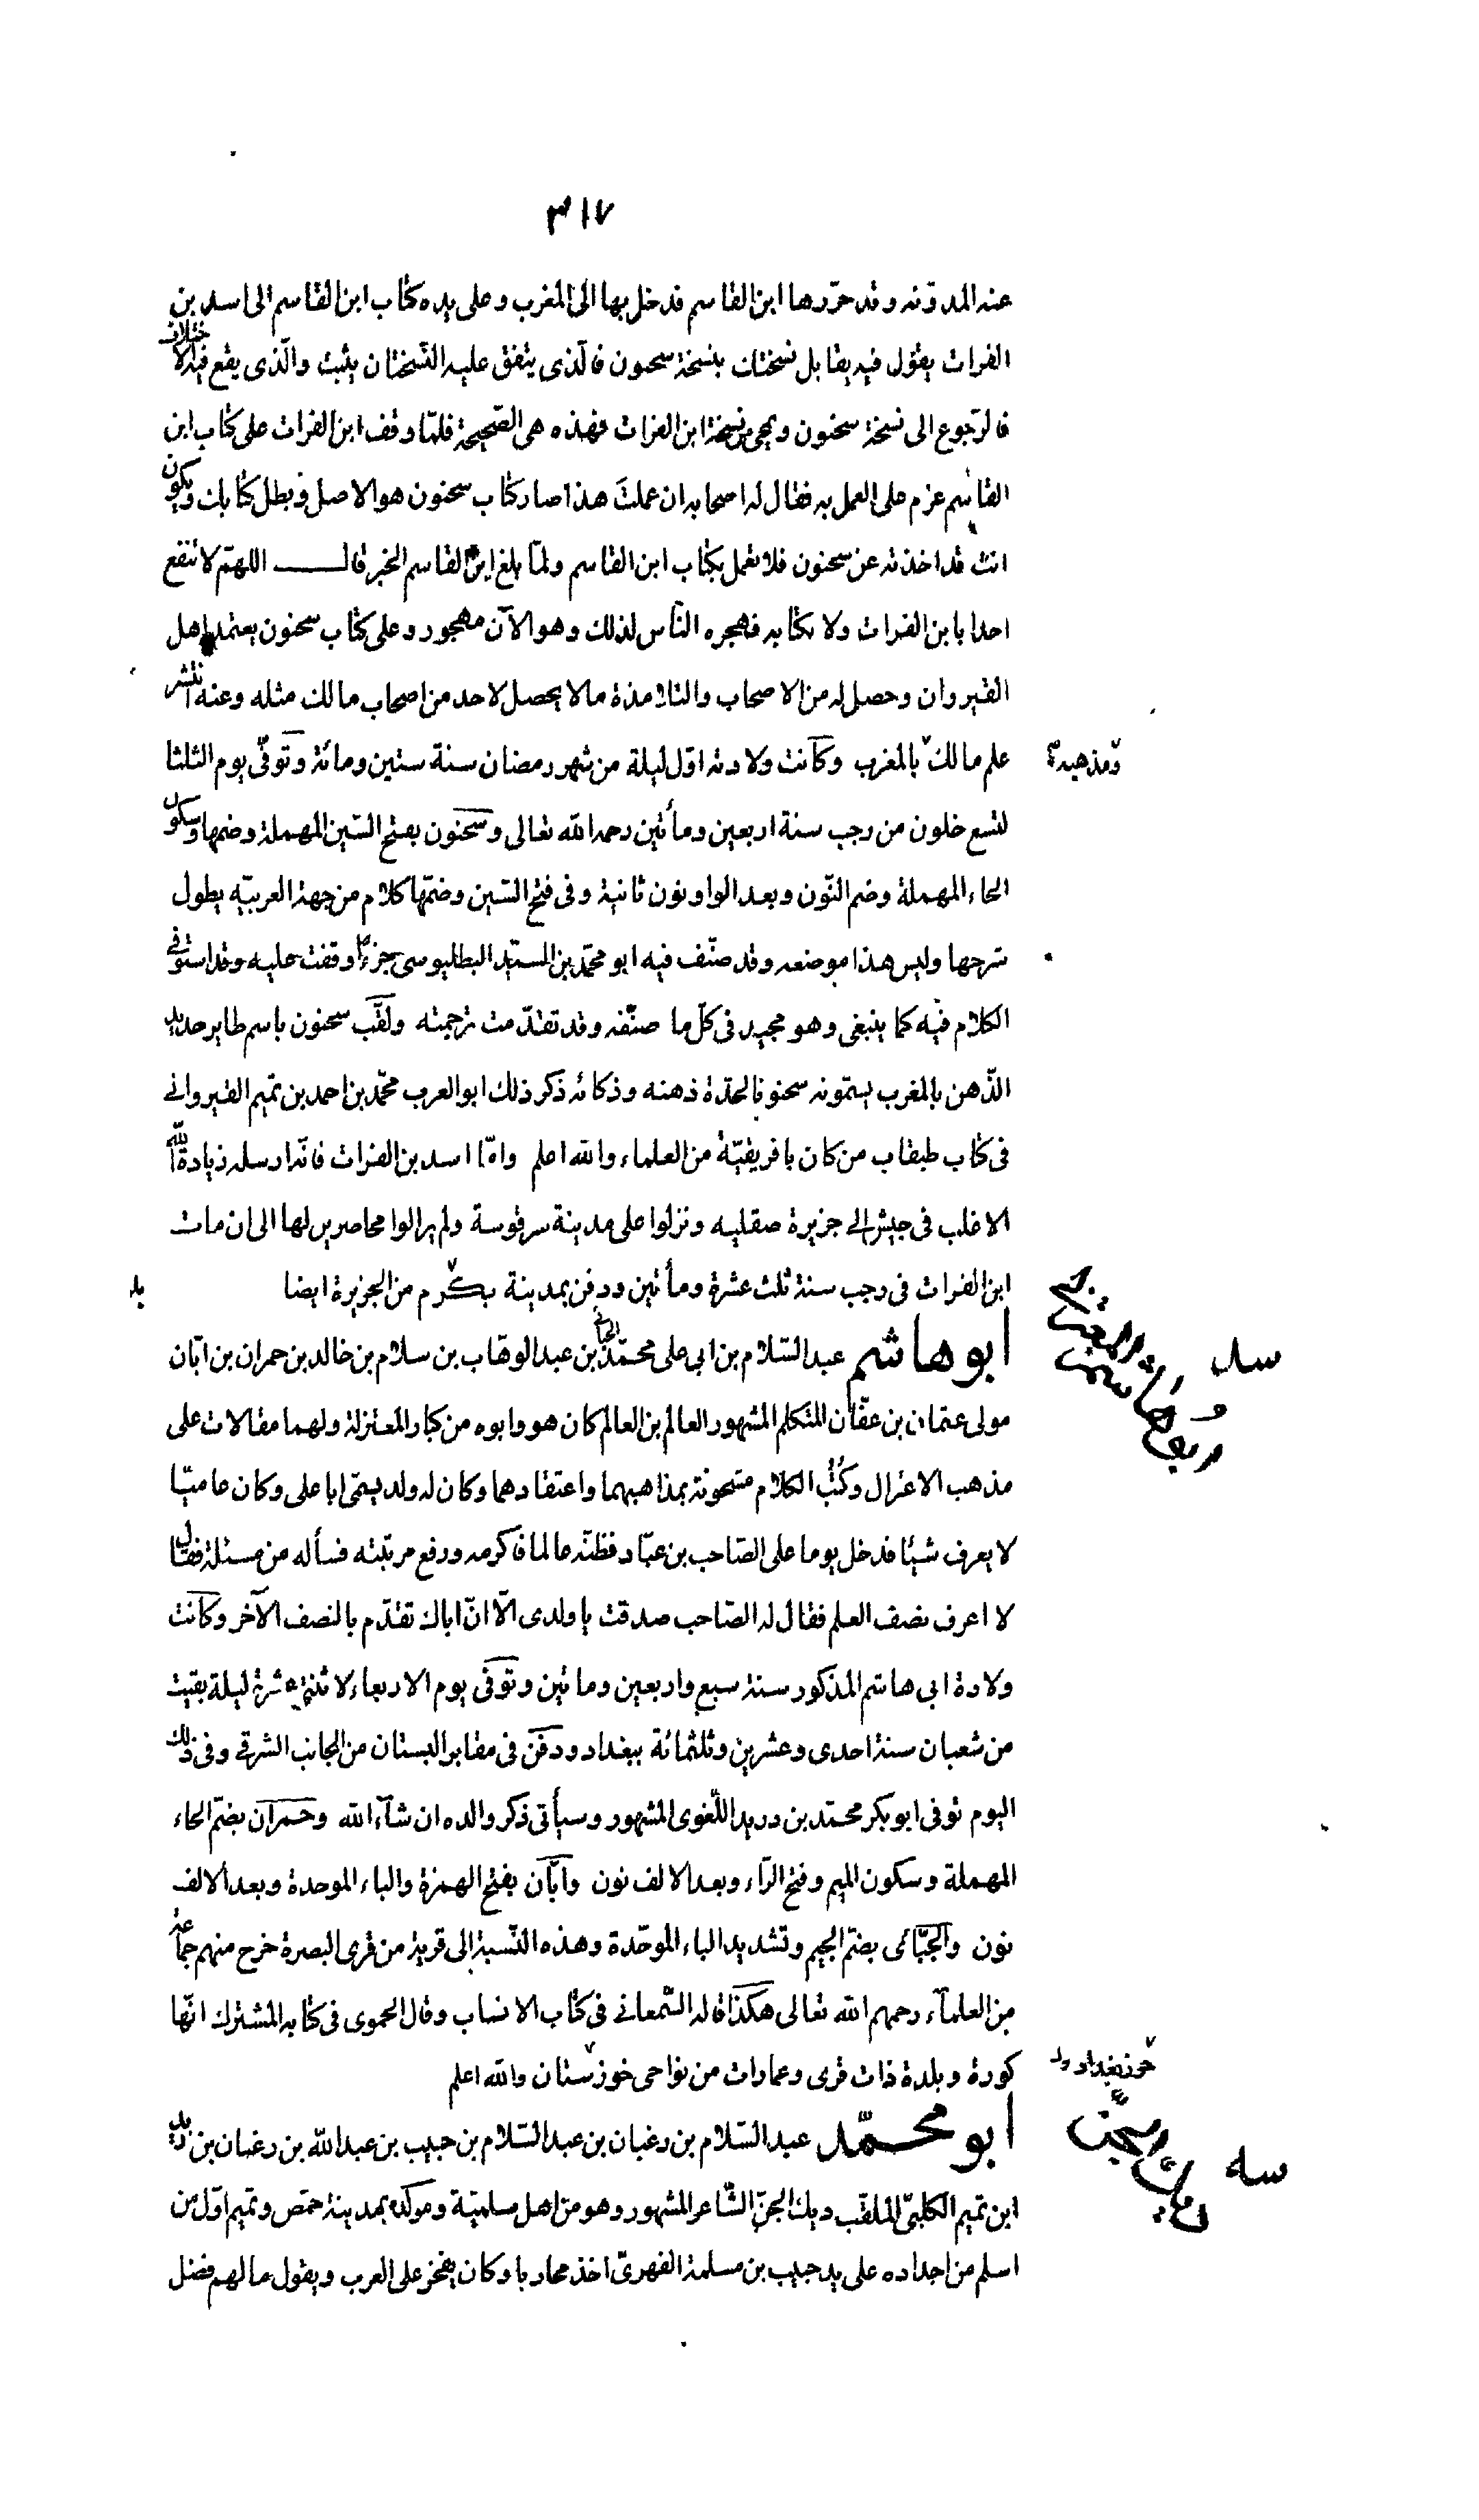 ٣١٧
عنه المدوّنه وقد حرّرها ابن القاسم فدخل بها الى المغرب وعلى يده كتاب ابن القاسم الى اسد بن
الفرات يقول فيه يقابل نسختك بنسخة سحنون فالّذى يتفق عليه النّسختان يثبت والّذى يقع فيه الاختلاف
فالرّجوع الى نسخة سحنون ويمحى من نسخة ابن الفرات فهذه هى الصّحيحة فلمّا وقف ابن الفرات على كتاب ابن
القاسم عزم على العمل به فقال له اصحابه ان عملتَ هذا صار كتاب سحنون هو الاصل وبطل كتابك ويكون
انت قد اخذته عن سحنون فلا تعمل بكتاب ابن القاسم ولمّا بلغ ابن القاسم الخبر قال اللهمّ لا تنفع
احدا بابن الفرات ولا بكتابه فهجره النّاس لذلك وهو الآن مهجور وعلى كتاب سحنون يعتمد اهل
القيروان وحصل له من الاصحاب والتلامذة ما لا يحصل لاحد من اصحاب مالك مثله وعنه انتشر
علم مالك بالمغرب وكانت ولادته اوّل ليلة من شهر رمضان سنة ستين ومائة وتوفّى يوم الثلثا
ومذهبه
لتسع خلون من رجب سنة اربعين ومأتين رحمه الله تعالى وسحنون بفتح السّين المهملة وضمها وسكون
الحاء المهملة وضم النّون وبعد الواو نون ثانية وفى فتح السّين وضمّها كلام من جهة العربيّه يطول
شرحها وليس هذا موضعه وقد صنّف فيه ابو محمّد بن السّيد البطليوسى جزءًا وقفت عليه وقد استوفى
الكلام فيه كما ينبغى وهو مجيد فى كلّ ما صنّفه وقد تقدّمت ترجمته ولقّب سحنون باسم طاير حديد
الذّهن بالمغرب يسمّونه سحنونا لحدّة ذهنه وذكائه ذكر ذلك ابو العرب محمّد بن احمد بن تميم القيروانى
فى كتاب طبقات من كان بافريقيّة من العلماء والله اعلم وامّا اسد بن الفرات فانّه ارسله زيادة الله
الاغلب فى جيش الى جزيرة صقليه ونزلوا على مدينة سرقوسة ولم يزالوا محاصرين لها الى ان مات
ابن الفرات فى رجب سنة ثلث عشرة ومأتين ودفن بمدينة بكرم من الجزيرة ايضا
ابو هاشم عبد السّلام بن ابى على محمّد الجبائى بن عبد الوهّاب بن سلام بن خالد بن حمران بن ابّان
مولى عثمان بن عفّان المتكلم المشهور العالم بن العالم كان هو وابوه من كبار المعتزلة ولهما مقالات على
مذهب الاعتزال وكتب الكلام مشحونة بمذاهبهما واعتقادهما وكان له ولد يسمّى ابا على وكان عاميّا
لا يعرف شيئا فدخل يوما على الصّاحب بن عبّاد فظنّه عالما فاكرمه ورفع مرتبته فسأله من مسئلة فقال
لا اعرف نصف العلم فقال له الصّاحب صدقت يا ولدى الّا انّ اباك تقدّم بالنصف الآخر وكانت
ولادة ابى هاشم المذكور سنة سبع واربعين ومائين وتوفى يوم الاربعاء لاثنتى عشرة ليلة بقيت
من شعبان سنة احدى وعشرين وثلثمائة ببغداد ودفن فى مقابر البستان من الجانب الشرقى وفى ذلك
اليوم توفى ابو بكر محمّد بن دريد اللّغوى المشهور وسيأتى ذكر والده ان شآء الله وحمران بضمّ الحاء
المهملة وسكون الميم وفتح الرّاء وبعد الالف نون وابّان بفتح الهمزة والباء الموحدة وبعد الالف
نون والجبّائى بضمّ الجيم وتشديد الباء الموحّدة وهذه النّسبة الى قرية من قرى البصرة خرج منهم جماعة
من العلمآء رحمهم الله تعالى هكذا قاله السّمعانى فى كتاب الانساب وقال الحموى فى كتابه المشترك انّها
كورة وبلدة ذات قرى وعمارات من نواحى خوزستان والله اعلم
ابو محمّد عبد السّلام بن رغبان بن عبد السّلام بن حبيب بن عبد الله بن رغبان بن زيد
ديك الجن
ابن تميم الكلبىّ الملقّب ديك الجنّ الشّاعر المشهور وهو من اهل سلميّة ومولده بمدينة حمص وتميم اوّل من
اسلم من اجداده على يد حبيب بن مسلمة الفهرىّ اخذ محاربا وكان يفخر على العرب ويقول ما لهم فضل